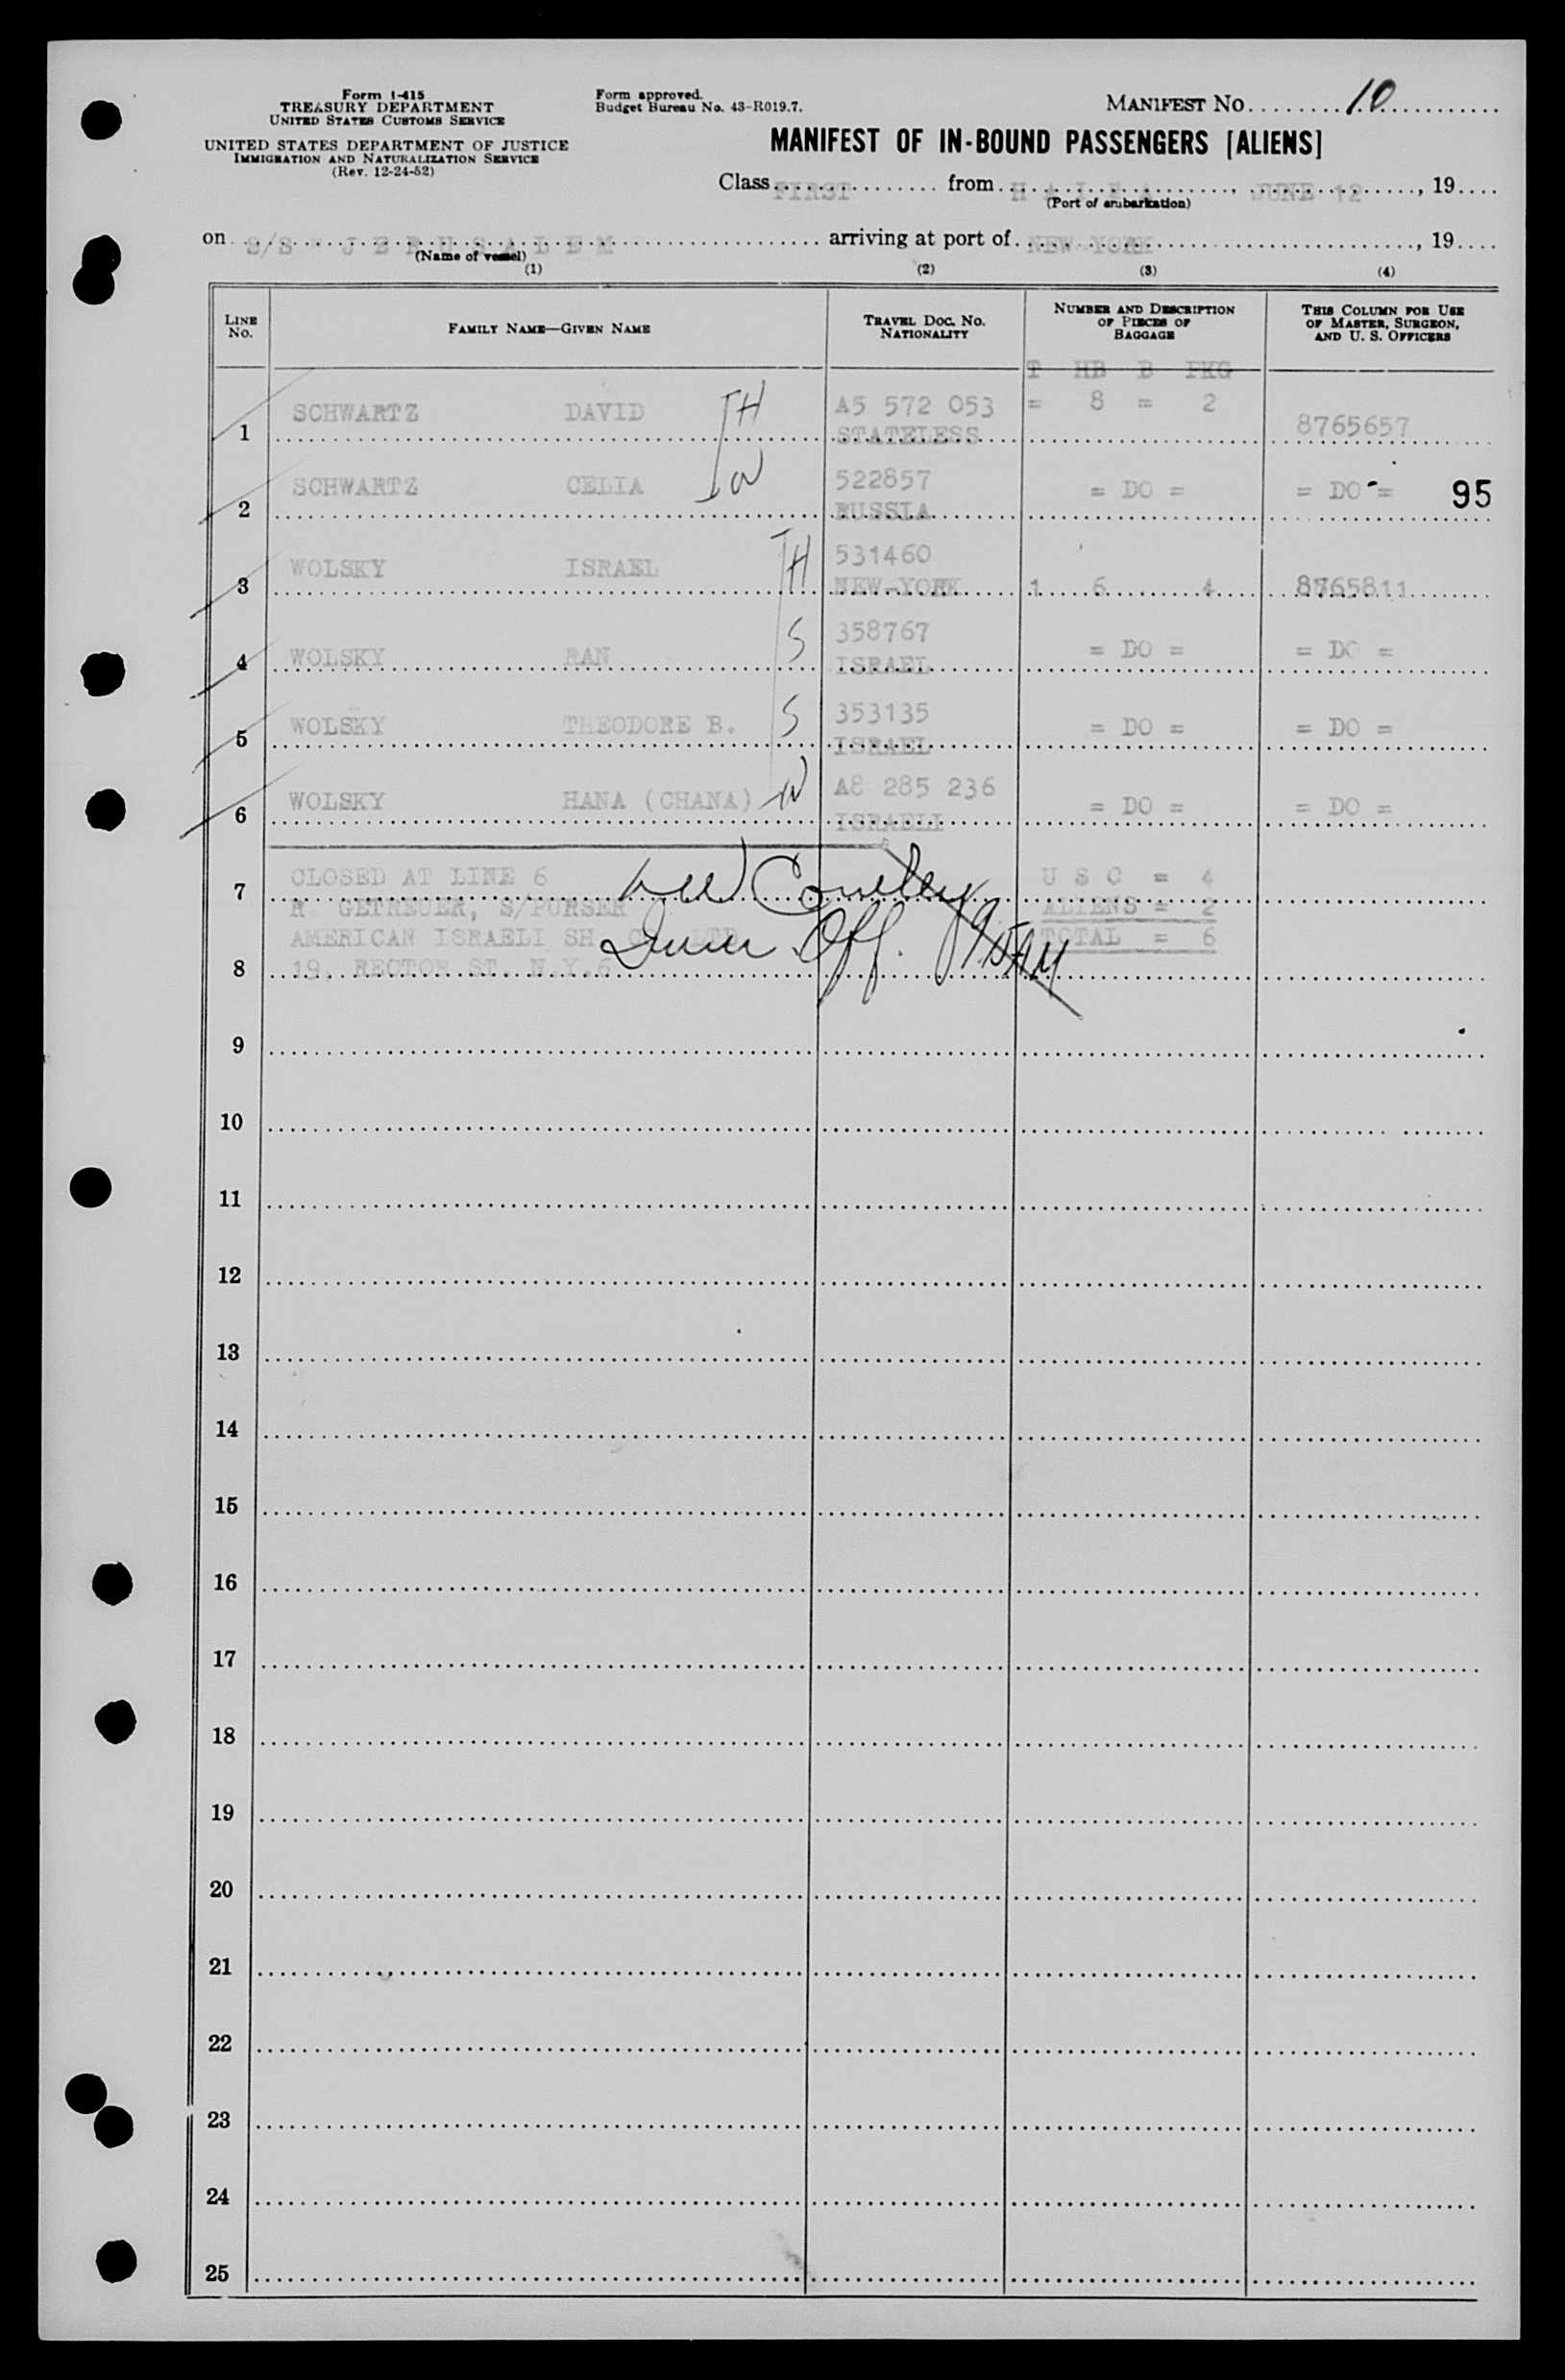 Form I-415
TREASURY DEPARTMENT
UNITED STATES CUSTOMS SERVICE
UNITED STATES DEPARTMENT OF JUSTICE
IMMIGRATION AND NATURALIZATION SERVICE
(Rev. 12-24-52)
Form approved.
Budget Bureau No. 43-R019.7.
MANIFEST NO. 10
MANIFEST OF IN-BOUND PASSENGERS [ALIENS]
Class FIRST from H A I F A, JUNE 12, 19
(Port of embarkation)
on S/S J E R U S A L E M arriving at port of NEW-YORK, 19
(Name of vessel)
(1) (2) (3) (4)
LINE NO. FAMILY NAME—GIVEN NAME TRAVEL DOC. NO. NATIONALITY NUMBER AND DESCRIPTION OF PIECES OF BAGGAGE THIS COLUMN FOR USE OF MASTER, SURGEON, AND U. S. OFFICERS
T HB B PKG
1 SCHWARTZ DAVID H A5 572 053 = 8 = 2 8765657
STATELESS
2 SCHWARTZ CELIA W 522857 = DO = = DO = 95
RUSSIA
3 WOLSKY ISRAEL H 531460
NEW-YORK 1 6 4 8765811
4 WOLSKY RAN S 358767 = DO = = DO =
ISRAEL
5 WOLSKY THEODORE B. S 353135 = DO = = DO =
ISRAEL
6 WOLSKY HANA (CHANA) W A8 285 236 = DO = = DO =
ISRAELI
7 CLOSED AT LINE 6 U S C = 4
R. GETREUER, S/PURSER ALIENS = 2
AMERICAN ISRAELI SH. CO. LTD TOTAL = 6
8 19. RECTOR ST. N.Y.6
Imm Off.
9
10
11
12
13
14
15
16
17
18
19
20
21
22
23
24
25